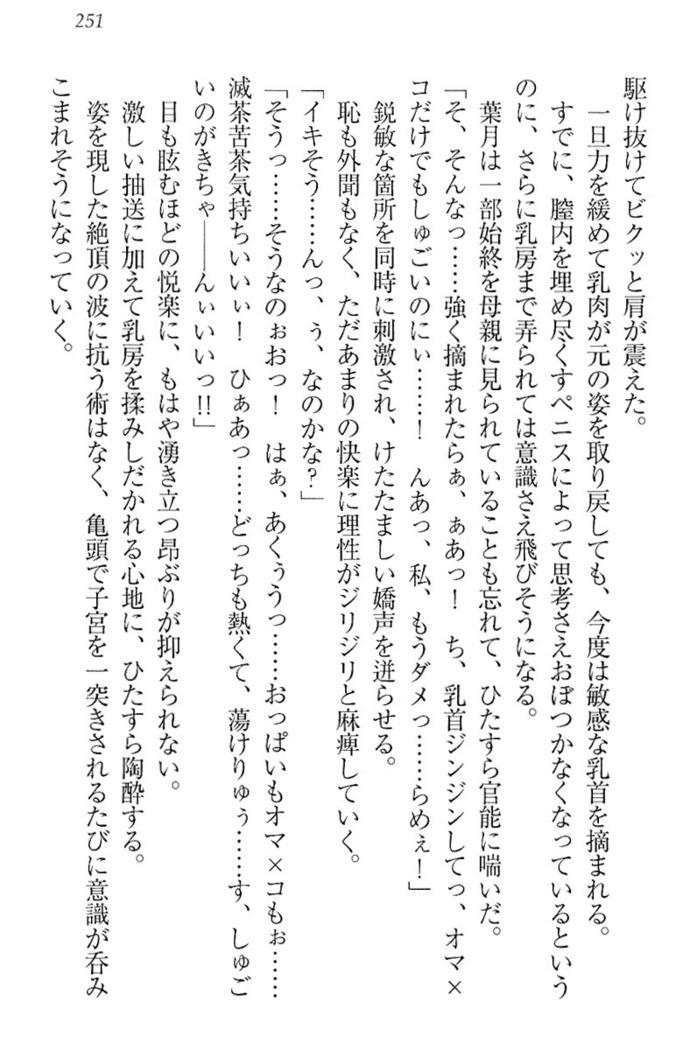 251
駆け抜けてビクッと肩が震えた。
一旦力を緩めて乳肉が元の姿を取り戻しても、今度は敏感な乳首を摘まれる。
すでに、膣内を埋め尽くすペニスによって思考さえおぼつかなくなっているという
のに、さらに乳房まで弄られては意識さえ飛びそうになる。
葉月は一部始終を母親に見られていることも忘れて、ひたすら官能に喘いだ。
「そ、そんなっ……強く摘まれたらぁ、ぁあっ！　ち、乳首ジンジンしてっ、オマ×
コだけでもしゅごいのにぃ……！　んあっ、私、もうダメっ……らめぇ！」
鋭敏な箇所を同時に刺激され、けたたましい嬌声を迸らせる。
恥も外聞もなく、ただあまりの快楽に理性がジリジリと麻痺していく。
「イキそう……んっ、ぅ、なのかな？」
「そうっ……そうなのぉおっ！　はぁ、あくぅうっ……おっぱいもオマ×コもぉ……
滅茶苦茶気持ちいいぃ！　ひぁあっ……どっちも熱くて、蕩けりゅぅ……す、しゅご
いのがきちゃ――んぃいいっ!!」
目も眩むほどの悦楽に、もはや湧き立つ昂ぶりが抑えられない。
激しい抽送に加えて乳房を揉みしだかれる心地に、ひたすら陶酔する。
姿を現した絶頂の波に抗う術はなく、亀頭で子宮を一突きされるたびに意識が呑み
こまれそうになっていく。